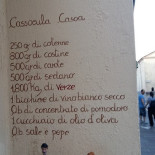 Cassoeula Casoea
250 gr di cotenne
800 gr di costine
500 gr di carote
500 gr di sedano
1,800 kg. di Verze
1 bicchiere di vino bianco secco
Q.b. di concentrato di pomodoro
1 cucchiaio di olio d'oliva
Q.b. sale e pepe